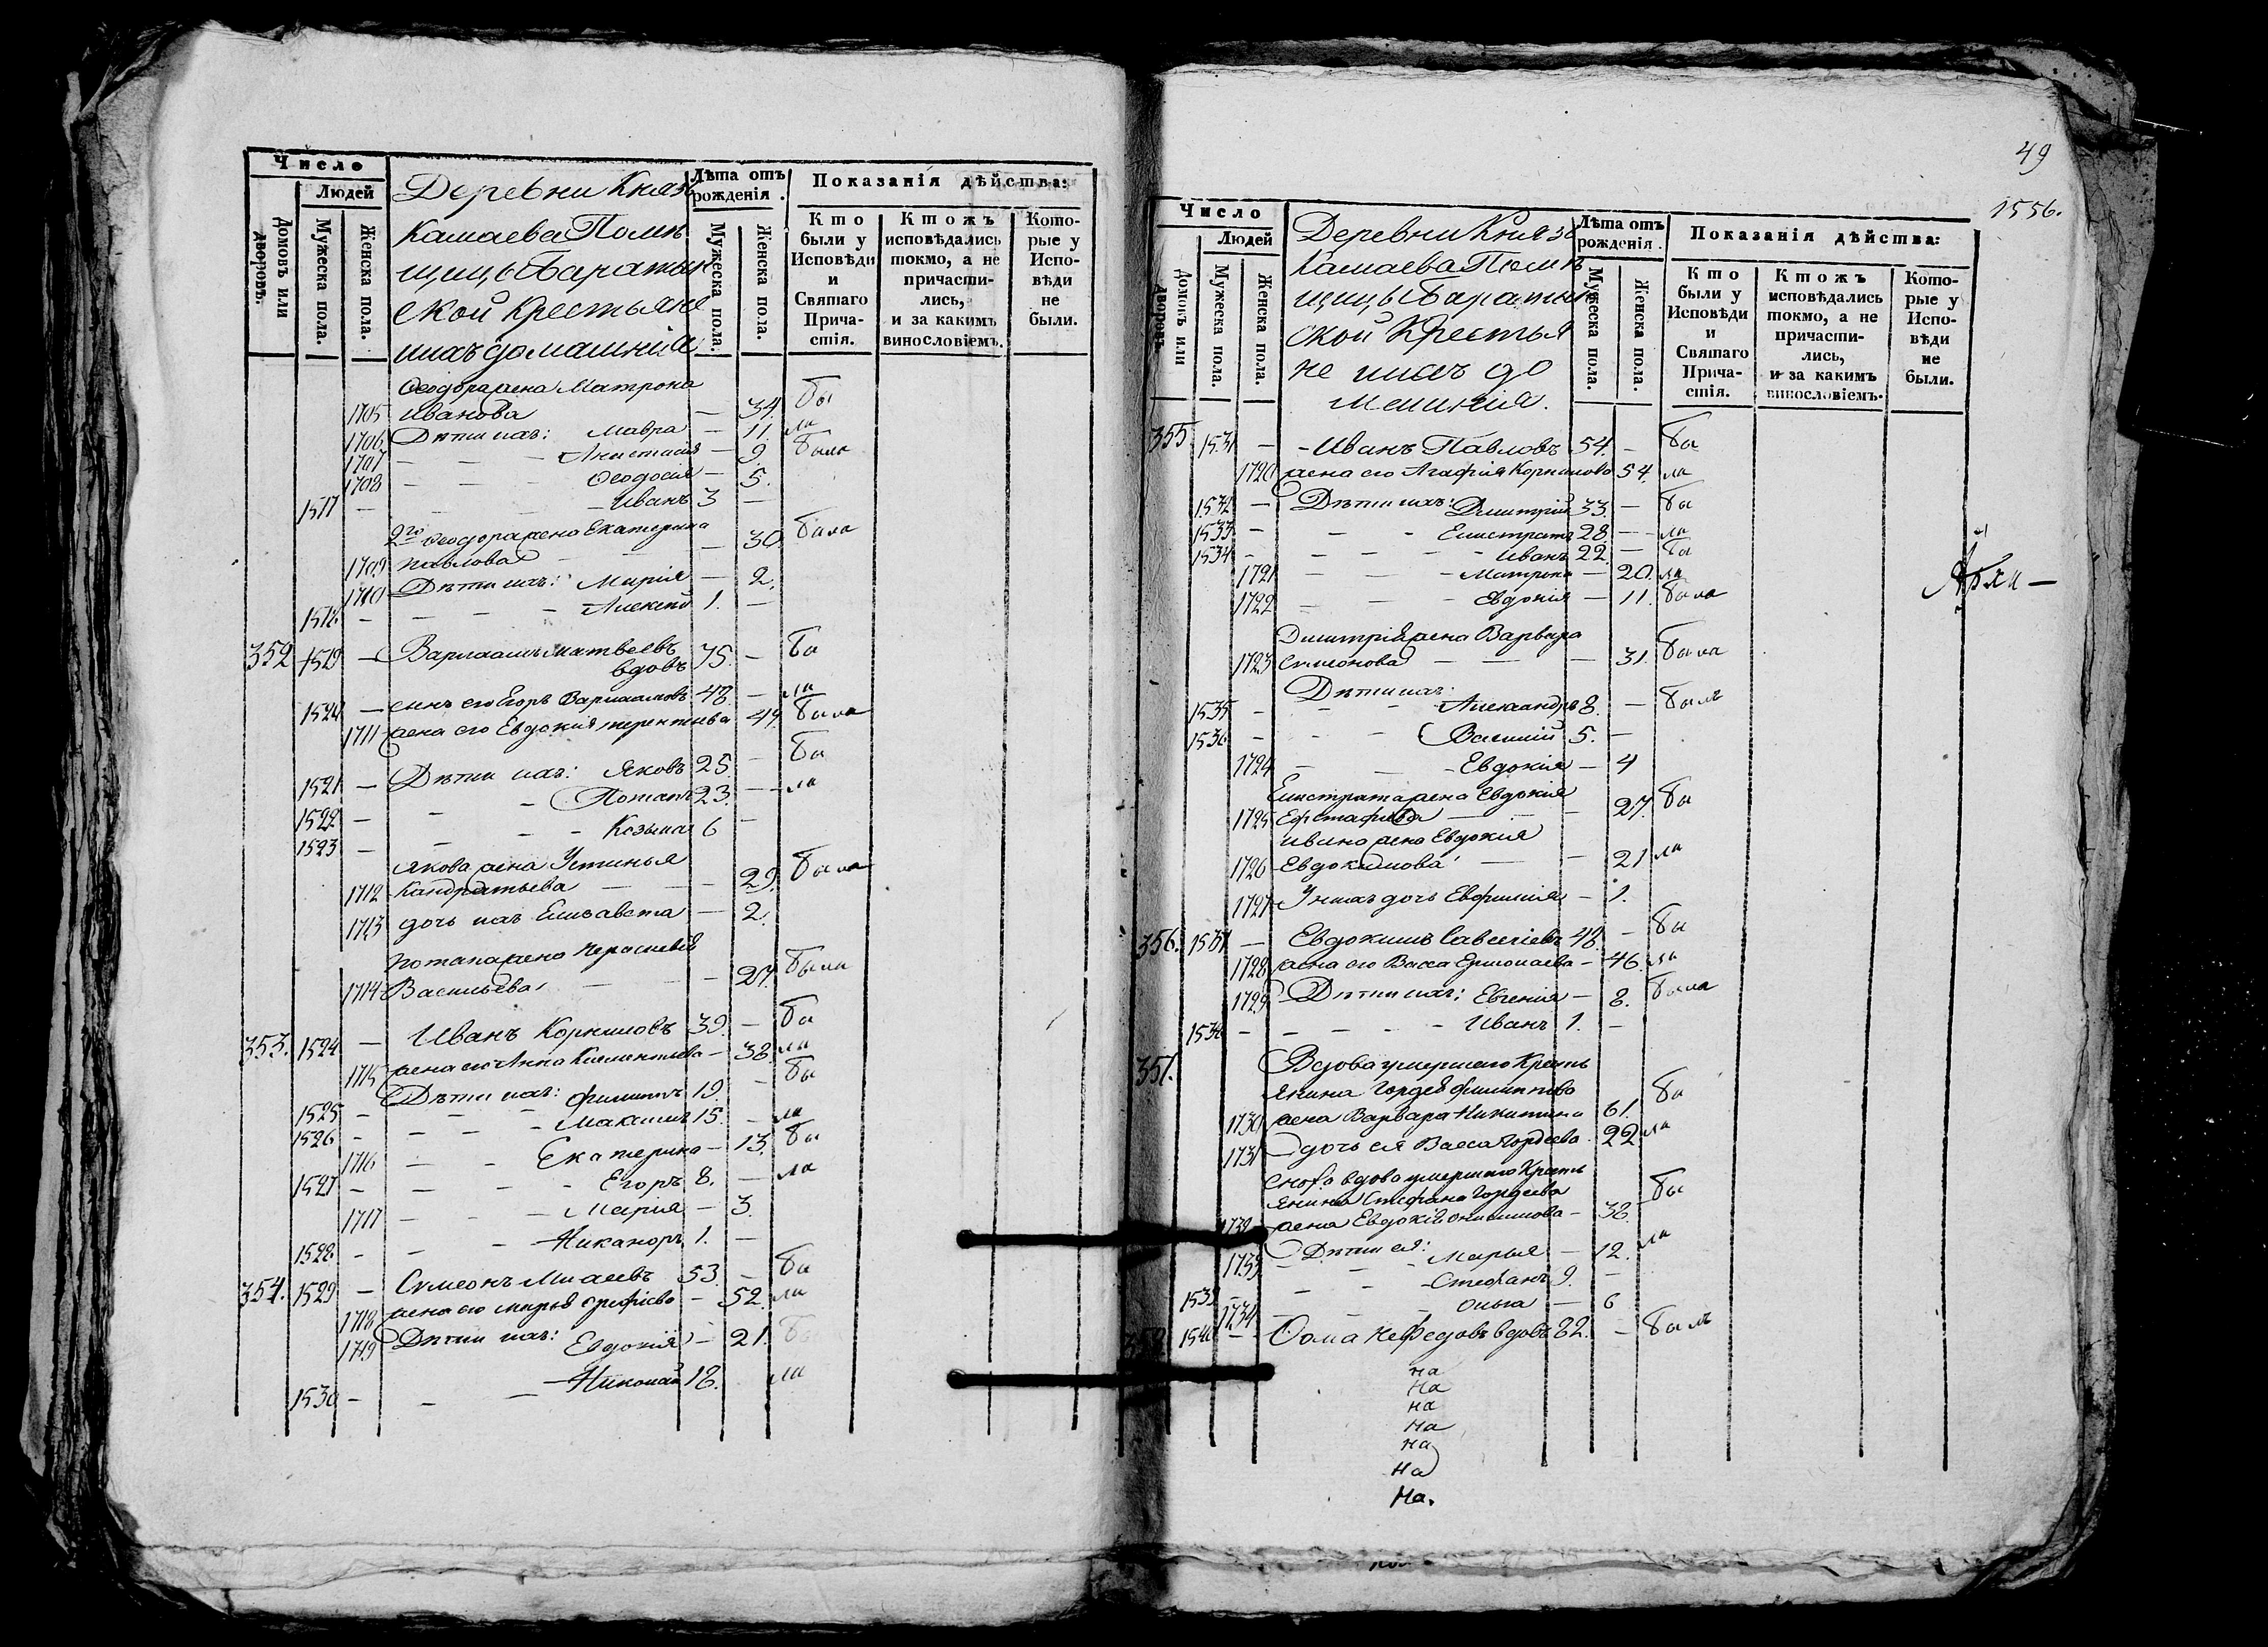 Число
Людей
Домовъ или дворовъ.
Мужеска пола.
Женска пола.
Деревни Князь
Камаева Помѣ
щицы Баратын
ской Крестьяне
ихъ домашнія
Лѣта отъ рожденія.
Мужеска пола.
Женска пола.
Показанія дѣйства:
Кто были у Исповѣди и Святаго Причастія.
Ктожъ исповѣдались токмо, а не причастились, и за какимъ винословіемъ.
Которые у Исповѣди не были.
Ѳеодора жена Матрона
1705 Иванова — 34. бы
1706 Дѣти ихъ: Мавра — 11. ла
1707 — — — Анастасія — 9. была
1708 — — — Ѳеодосія — 5.
1517 — — — — Иванъ 3 —
2го Ѳеодора жена Екатерина
1709 Павлова — — — 30. была
1710 Дѣти ихъ: Марія — 2.
1518 — — — — Алексѣй 1. —
352 1519 — Варлаамъ Матвѣевъ
вдовъ 75. — бы
1520 — сынъ его Егоръ Варлаамовъ 48. — ли
1711 жена его Евдокія Терентьева 49. была
1521 — Дѣти ихъ: Яковъ 25. — бы
1522 — — — Потапъ 23. — ли
1523 — — — Козьма 6 —
Якова жена Устинья
1712 Кандратьева — — — 29. была
1713 дочь ихъ Елисавета — 2.
Потапа жена Параскевія
1714 Васильева — — — 27. была
353. 1524 — Иванъ Корниловъ 39. — бы
1715 жена его Анна Климентьева — 38. ли
1525 — Дѣти ихъ: Филиппъ 19. — бы
1526 — — — — Максимъ 15. — ли
1716 — — Екатерина — 13. бы
1527 — — — — Егоръ 8. — ли
1717 — — — Марія — 3.
1528 — — — Никаноръ 1. —
354. 1529 — Симеонъ 53. — бы
1718 жена его Марья — 52. ли
1719 Дѣти ихъ: Евдокія — 21. бы
1530 — — — Николай 18. ли
49
1556.
Число
Людей
Домовъ или дворовъ.
Мужеска пола.
Женска пола.
Деревни Князь
Камаева Помѣ
щицы Баратын
ской Крестья
не ихъ до
машнія.
Лѣта отъ рожденія.
Мужеска пола.
Женска пола.
Показанія дѣйства:
Кто были у Исповѣди и Святаго Причастія.
Ктожъ исповѣдались токмо, а не причастились, и за какимъ винословіемъ.
Которые у Исповѣди не были.
355. 1531 — Иванъ Павловъ 54. — бы
1720 жена его Агафія Корнилова 54. ли
1532 — Дѣти ихъ: Димитрій 33. — бы
1533 — — — Елистратъ 28. — ли
1534 — — — — Иванъ 22. — бы
1721 — — — Матрона — 20. ли
1722 — — — Евдокія — 11. была
Димитрія жена Варвара
1723 Симеонова — — — 31. была
Дѣти ихъ:
1535 — — — Александръ 8. — былъ
1536 — — — Василій 5. —
1724 — — — Евдокія — 4
Елистрата жена Евдокія
1725 Ефстафьева — — 27. бы
Ивана жена Евдокія
1726 Евдокимова — — 21 ли
1727 У нихъ дочь Евфимія — 1.
356. 1537 — Евдокимъ Савельевъ 48. — бы
1728 жена его Васса Ермолаева — 46. ли
1729 Дѣти ихъ: Евгенія — 8. была
1538 — — — — Иванъ 1. —
357. Вдова умершаго Кресть
янина Гордея Филиппова
1730 жена Варвара Никитина 61. бы
1731 дочь ея Васса Гордеева 22 ли
Сноха вдова умершаго Кресть
янина Стефана Гордеева
1732 жена Евдокія — 38. бы
1733 Дѣти ея: Марья — 12. ли
1539 — — Стефанъ 9. —
1734 — — — Ольга — 6
1540 — Ѳома Нефедовъ вдовъ 82. — былъ
на
на
на
на
на
на
на.